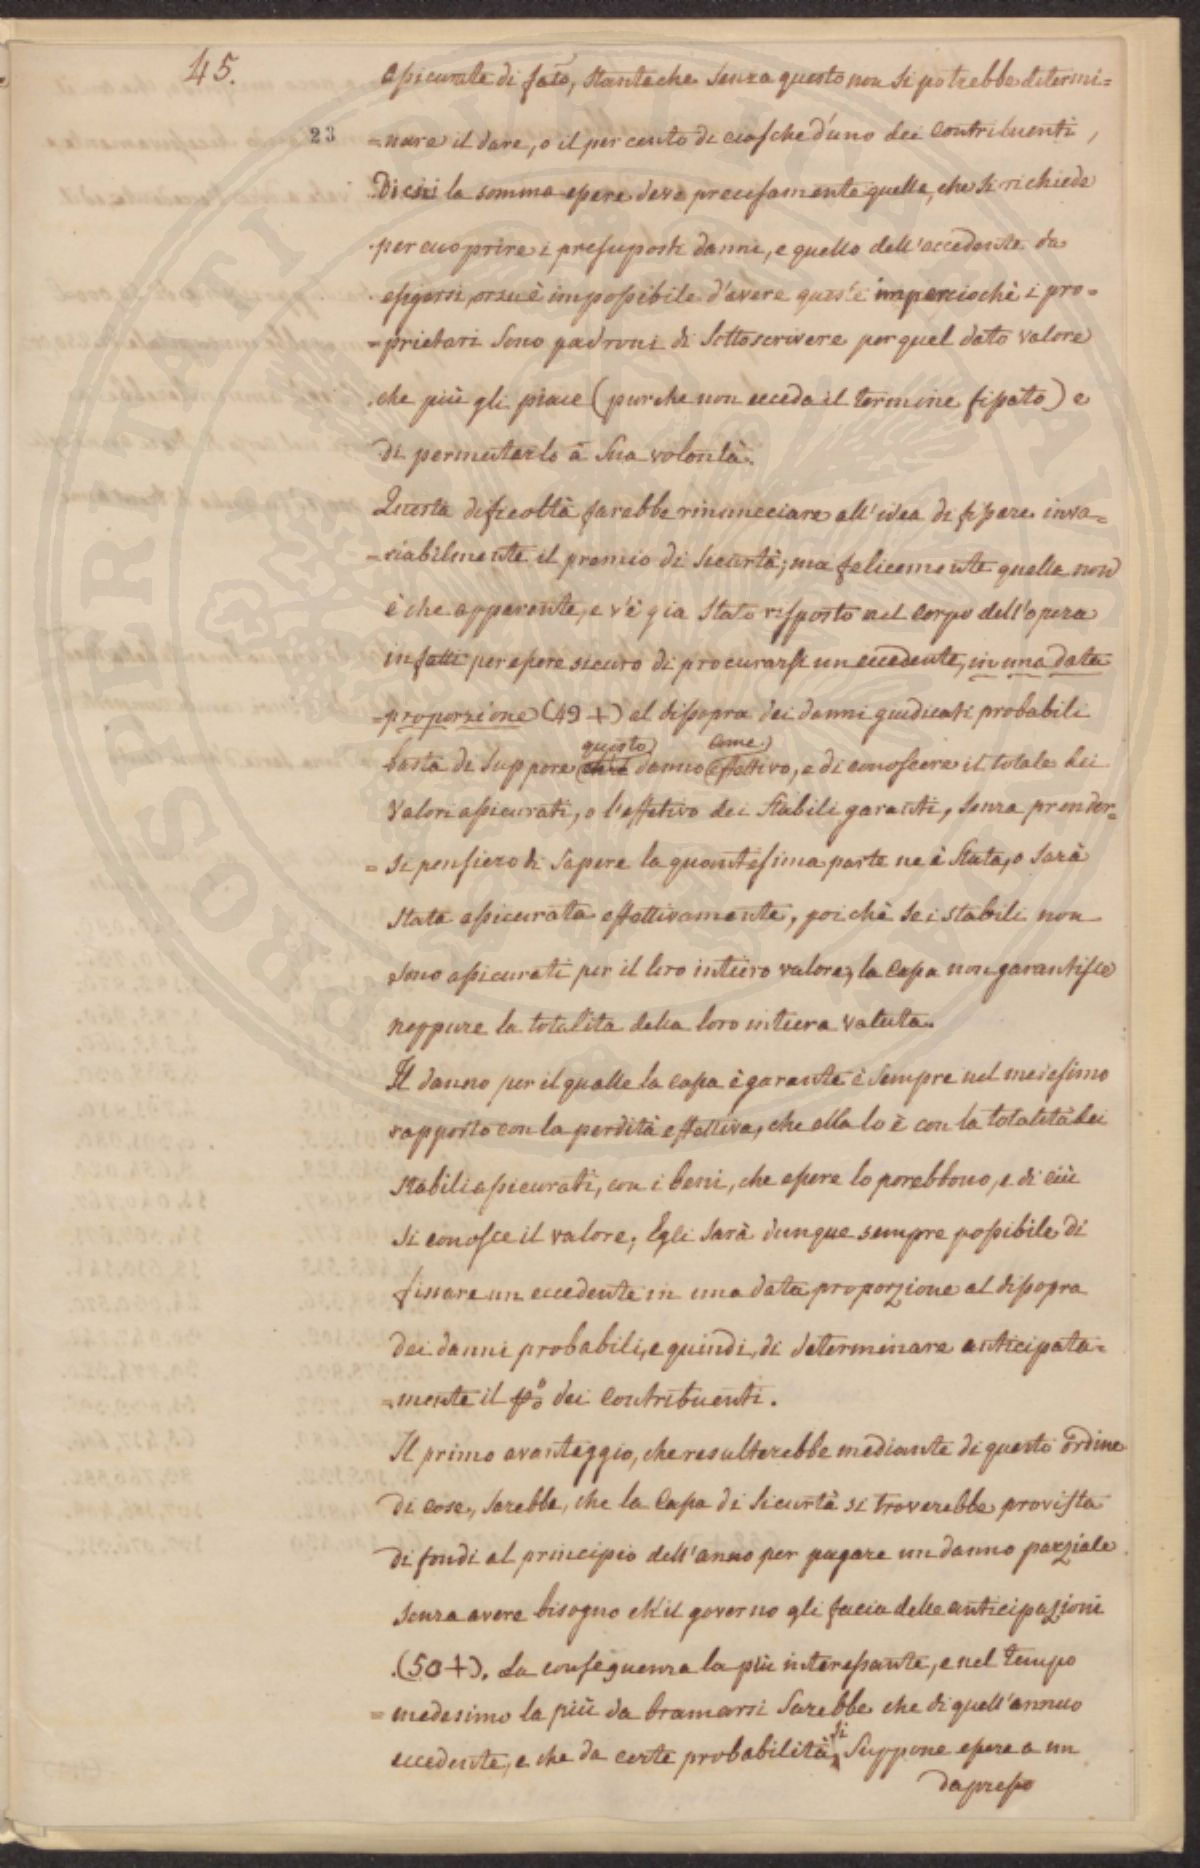 45.
23
assicurate di fato, stanteche senza questo non si potrebbe determi=
=nare il dare, o il per cento di ciasched'uno dei contribuenti,
Di cui la somma essere deve precisamente quella, che si richiede
per cuoprire i presuposti danni, e quello dell'eccedente da
esigersi, or su è impossibile d'avere queste imperciochè i pro=
=prietari sono padroni di sottoscrivere per quel dato valore
che più gli piace (purche non ecceda il termine fissato) e
di permutarlo a sua volontà.
Questa dificoltà farebbe rinuncciare all'idea di fissare inva=
=riabilmente il premio di sicurtà; ma felicemente quella non
è che apparente, e v'è gia stato risposto nel corpo dell'opera
infatti per essere sicuro di procurarsi un eccedente, in una data
=proporzione (49+) al dissopra dei danni giudicati probabili
questo come
basta di suppore danno effettivo, e di conoscere il totale dei
valori assicurati, o l'effetivo dei stabili garanti, senza prender=
=si pensiero di sapere la quantesima parte ne è stata, o sarà
stata assicurata effettivamente, poichè se i stabili non
sono assicurati per il loro intiero valore, la cassa non garantisce
neppure la totalita della loro intiera valuta.
Il danno per il qualle la cassa è garante è sempre nel medesimo
rapporto con la perdità effettiva, che ella lo è con la totalità dei
stabili assicurati, con i beni, che essere lo porebbono, e di ciùi
si conosce il valore; Egli sarà dunque sempre possibile di
fissare un eccedente in una data proporzione al dissopra
dei danni probabili, e quindi, di determinare anticipata=
=mente il p%o dei contribuenti.
Il primo avanteggio, che resulterebbe mediante di questo ordine
di cose, sarebbe, che la Cassa di sicurtà si troverebbe provista
di fondi al principio dell'anno per pagare un danno parziale
senza avere bisogno ch'il governo gli facia delle anticipazioni
(50+). La conseguenza la più interessante, e nel tempo
=medesimo la più da bramarsi sarebbe che di quell'annuo
si
eccedente, e che da certe probabilità suppone essere a un
dapresso
PROSPERITATI PUBLICAE AUGENDAE